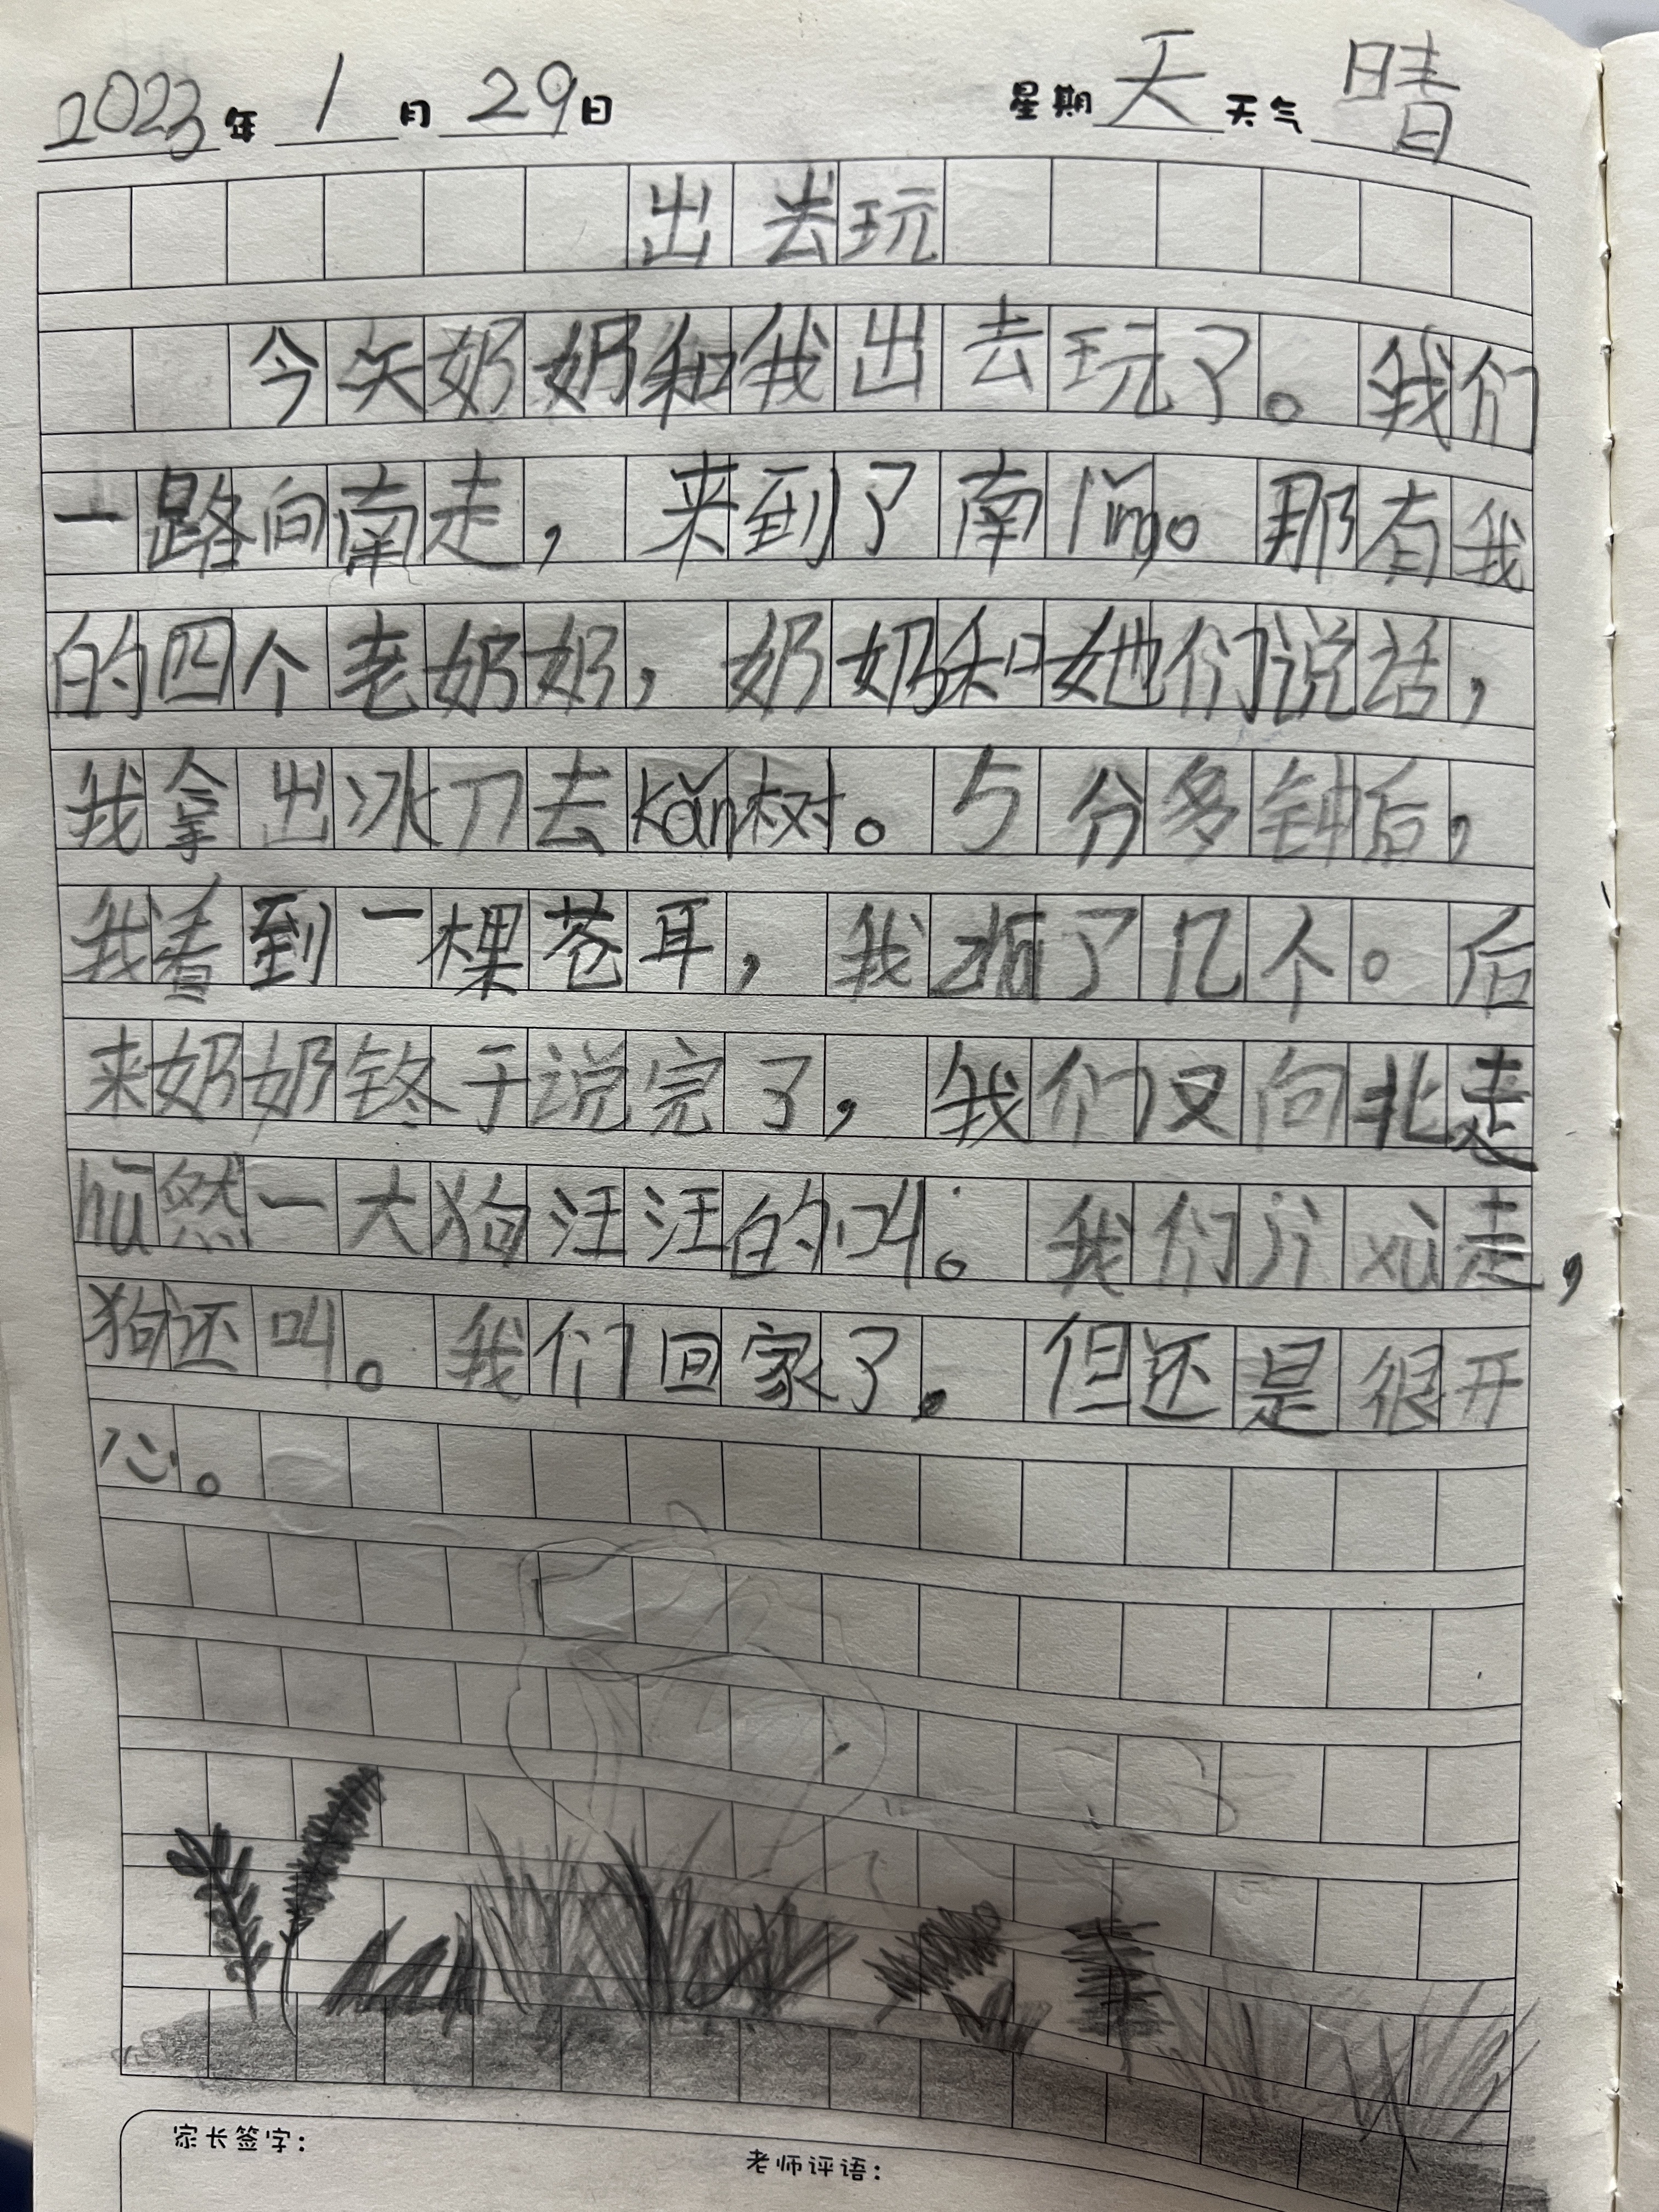 2023年1月29日 星期天 天气晴
出去玩
今天奶奶和我出去玩了。我们
一路向南走，来到了南lǐng。那有我
的四个老奶奶，奶奶和她们说话，
我拿出冰刀去kǎn树。5分多钟后，
我看到一棵苍耳，我了几个。后
来奶奶终于说完了，我们又向北走
hū然一大狗汪汪的叫。我们xù走，
狗还叫。我们回家了。但还是很开
心。
家长签字：
老师评语：